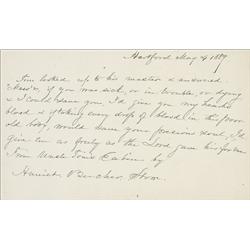 Hartford May 4 1889
Tom looked up to his master & answered.
"Mas'r, if you was sick, or in trouble, or dying
& I could save you, I'd give you my heart's
blood & if taking every drop of blood in this poor
old body, would save your precious soul, I'd
give 'em as freely as the Lord gave his for me
From Uncle Tom's Cabin by
Harriet Beecher Stowe